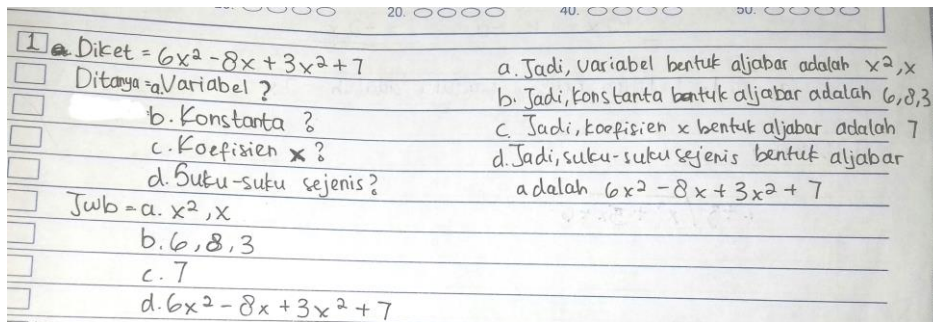 20. 40. 50.
1 a. Diket = 6x² - 8x + 3x² + 7
Ditanya = a. Variabel ?
b. Konstanta ?
c. Koefisien x ?
d. Suku-suku sejenis ?
Jwb = a. x², x
b. 6, 8, 3
c. 7
d. 6x² - 8x + 3x² + 7
a. Jadi, variabel bentuk aljabar adalah x², x
b. Jadi, konstanta bentuk aljabar adalah 6, 8, 3
c. Jadi, koefisien x bentuk aljabar adalah 7
d. Jadi, suku-suku sejenis bentuk aljabar
adalah 6x² - 8x + 3x² + 7